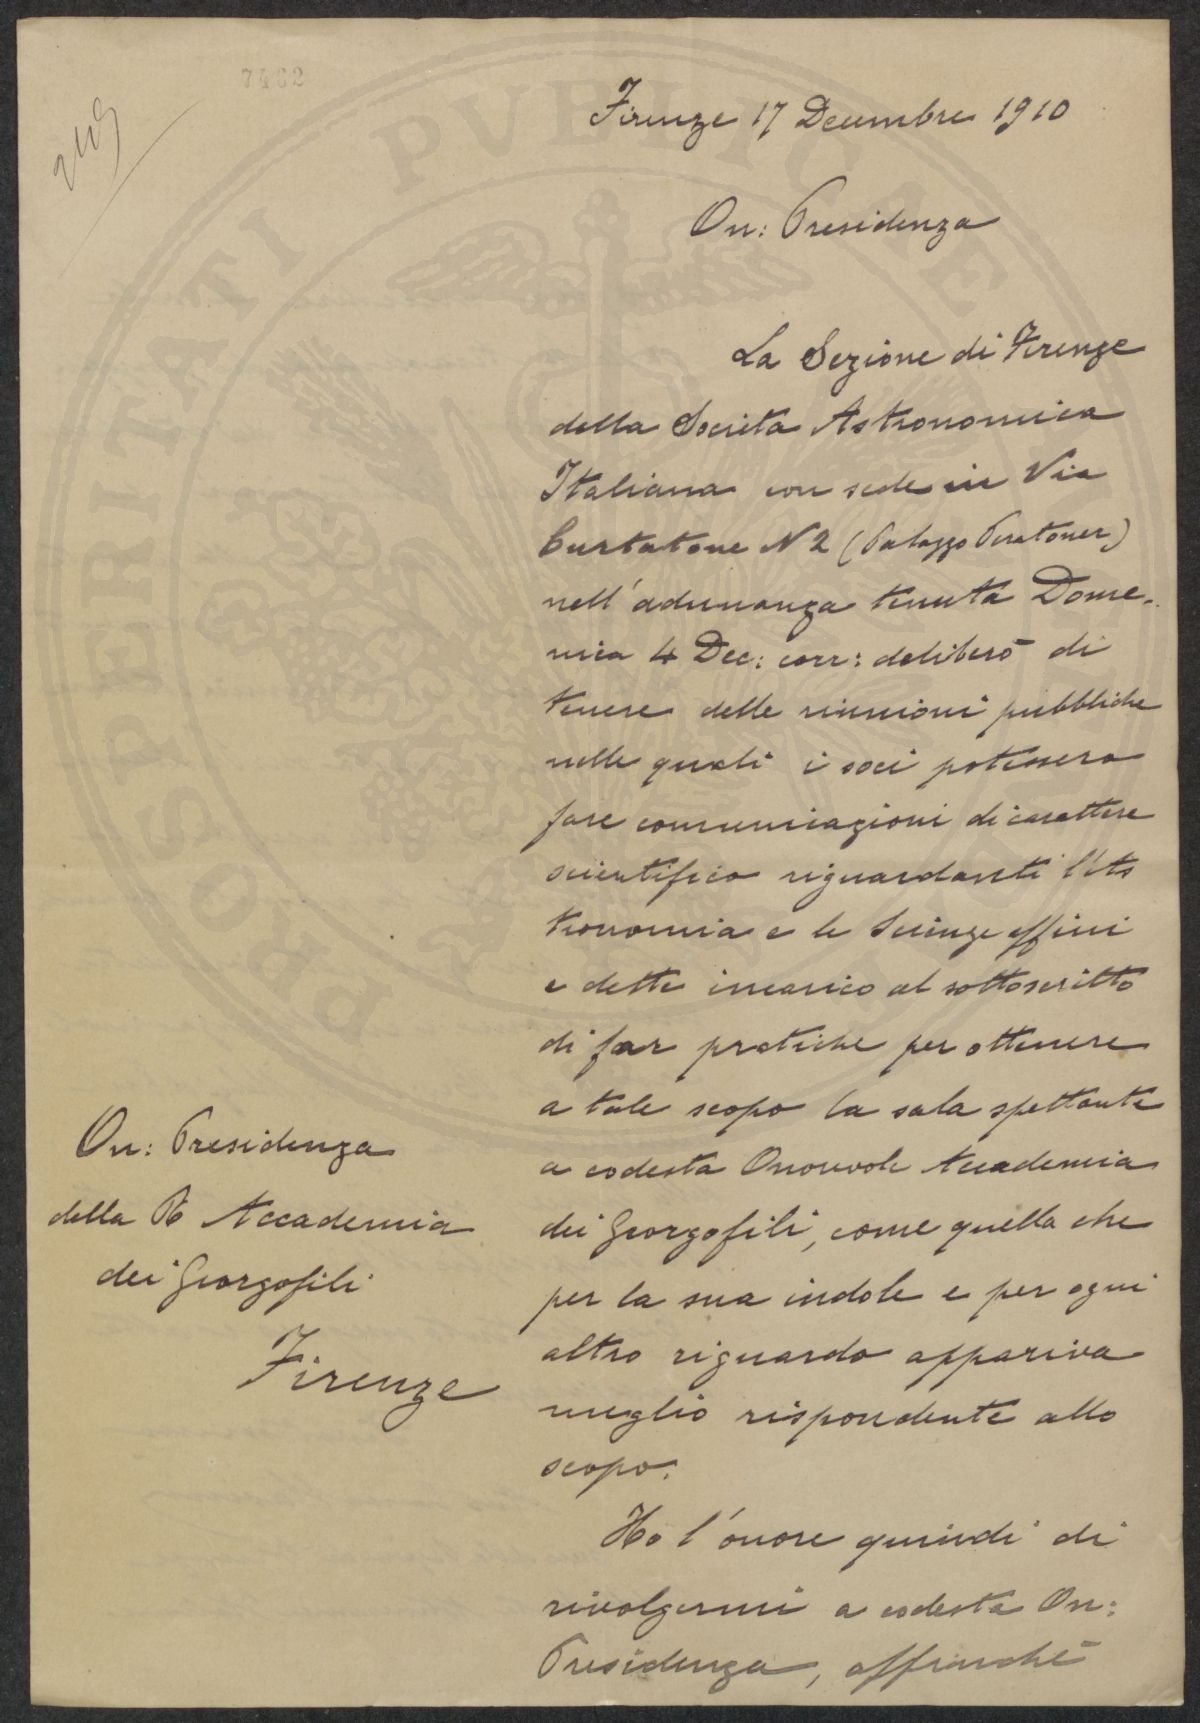 7462
Firenze 17 Decembre 1910
On: Presidenza
La Sezione di Firenze
della Società Astronomica
Italiana con sede in Via
Curtatone N 2 (Palazzo Peratoner)
nell'adunanza tenuta Dome-
nica 4 Dec: corr: deliberò di
tenere delle riunioni pubbliche
nelle quali i soci potessero
fare comunicazioni di carattere
scientifico riguardanti l'As
tronomia e le Scienze affini
e dette incarico al sottoscritto
di far pratiche per ottenere
a tale scopo la sala spettante
a codesta Onorevole Accademia
dei Georgofili, come quella che
per la sua indole e per ogni
altro riguardo appariva
meglio rispondente allo
scopo.
Ho l'onore quindi di
rivolgermi a codesta On:
Presidenza, affinchè
On: Presidenza
della R Accademia
dei Georgofili
Firenze
PROSPERITATI PVBLICAE